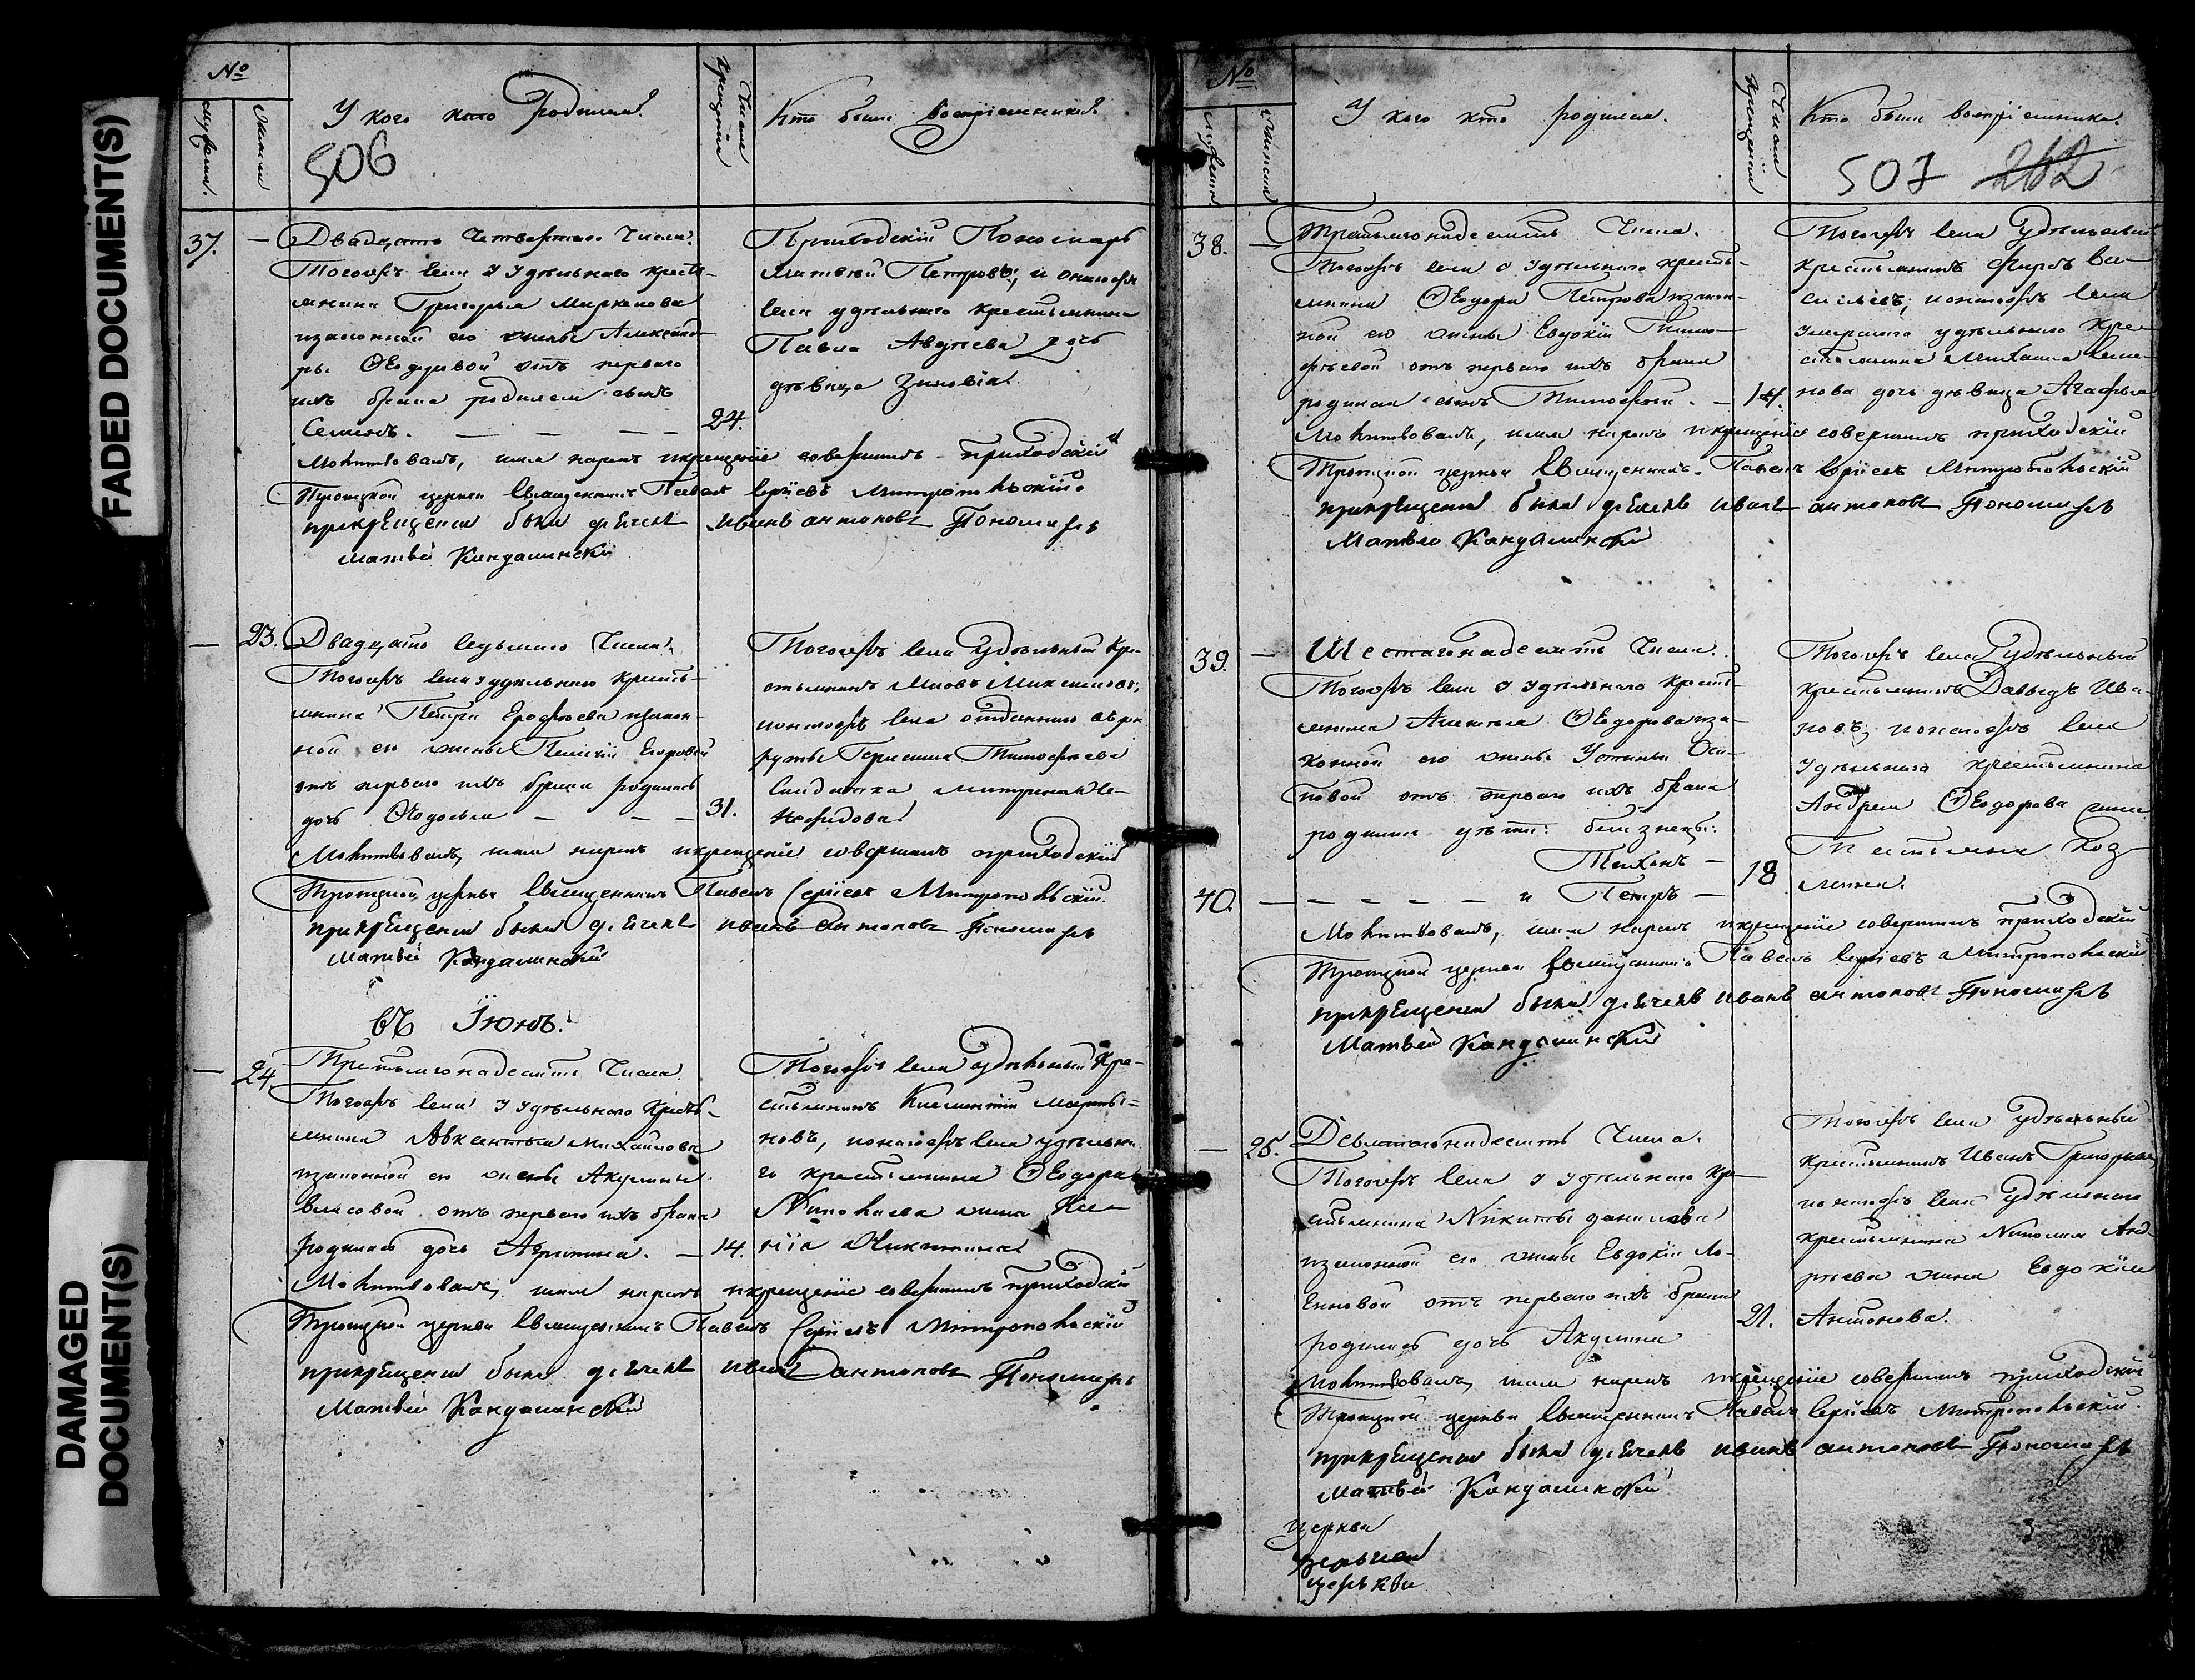 FADED DOCUMENT(S)
DAMAGED
DOCUMENT(S)
№
мужеска.
женска
У кого кто родился?
506
Число крещенія
Кто были воспріемники?
37. —
Двадцать четвертаго числа.
Тогожъ села у удѣльнаго кресть-
янина Григорья
изаконной его жены Александ-
ры Ѳеодоровой отъ перваго
ихъ брака родился сынъ
Семіонъ. — — — —
24.
Приходскій Пономарь
Матвѣй Петровъ; и онагожъ
села удѣльнаго крестьянина
Павла Авдѣева дочь
дѣвица Зиновія.
Молитвовалъ, имя нарекъ икрещеніе совершилъ приходскій
Троицкой церкви Священникъ Павелъ Сергіевъ Митропольскій.
прикрещеніи были дьячекъ иванъ антоновъ Пономарь
Матвѣй Кандалинскій
— 23.
Двадцать седьмаго числа.
Тогожъ села у удѣльнаго кресть-
янина Петра Ерофѣева изакон-
ной его жены Пелагіи Егоровой
отъ перваго ихъ брака родилась
дочь Ѳеодосья — — —
31.
Тогожъ села Удѣльный кре-
стьянинъ
ионагожъ села отданнаго въ рек
руты Герасима Тимофѣева
Солдатка Матрена Не-
Молитвовалъ, имя нарекъ икрещеніе совершилъ приходскій
Троицкой церкви Священникъ Павелъ Сергіевъ Митропольскій.
прикрещеніи были дьячекъ иванъ антоновъ Пономарь
Матвѣй Кандалинскій
въ Іюнѣ.
— 24.
Третьягонадесять Числа.
Тогожъ села у удѣльнаго кресть-
янина Авксентья Михайлова
изаконной его жены Акулины
Власовой отъ перваго ихъ брака
родилась дочь Агрипина. —
14.
Тогожъ села удѣльный кре-
стьянинъ Климентій Марты-
новъ, ионагожъ села удѣльна
го крестьянина Ѳеодора
Николаева жена Ксе-
нія Никитина
Молитвовалъ, имя нарекъ икрещеніе совершилъ приходскій
Троицкой церкви Священникъ Павелъ Сергіевъ Митропольскій
прикрещеніи были дьячекъ иванъ антоновъ Пономарь
Матвѣй Кандалинскій
№
мужеска
женска
У кого кто родился.
Число крещенія
Кто были воспріемники.
507 262
38. —
Третьягонадесять Числа.
Тогожъ села у удѣльнаго кресть-
янина Ѳеодора Петрова изакон-
ной его жены Евдокіи Тимо-
фѣевой отъ перваго ихъ брака
родился сынъ Тимофей. —
14.
Тогожъ села Удѣльный
крестьянинъ Фирсъ Ва-
сильевъ; ионагожъ села
умершаго удѣльнаго кре-
стьянина Михаила Семе-
нова дочь дѣвица Агафья
Молитвовалъ, имя нарекъ икрещеніе совершилъ приходскій
Троицкой церкви Священникъ Павелъ Сергіевъ Митропольскій
прикрещеніи были дьячекъ иванъ антоновъ Пономарь
Матвей Кандалинскій
39. —
Шестагонадесять Числа.
Тогожъ села у удѣльнаго кресть-
янина Ѳеодорова иза-
конной его жены Устиньи Оси-
повой отъ перваго ихъ брака
родились дѣти: близнецы:
Тихонъ —
40. — — — — — и Петръ —
18
Тогожъ села Удѣльный
крестьянинъ Давыдъ Ива-
новъ; ионагожъ села
удѣльнаго крестьянина
Андрея Ѳеодорова жена
Татьяна Коз-
мина.
Молитвовалъ, имя нарекъ икрещеніе совершилъ приходскій
Троицкой церкви Священникъ Павелъ Сергіевъ Митропольскій
прикрещеніи были дьячекъ иванъ антоновъ Пономарь
Матвей Кандалинскій
— 25.
Девятагонадесять Числа.
Тогожъ села у удѣльнаго кре-
стьянина Никиты данилова
изаконной его жены Евдокіи Ло-
гиновой отъ перваго ихъ брака
родилась дочь Акулина
21.
Тогожъ села Удѣльный
крестьянинъ Иванъ Григорьевъ
ионагожъ села Удѣльнаго
крестьянина Николая Анд-
рѣева жена Евдокія
Антонова.
молитвовалъ, имя нарекъ икрещеніе совершилъ приходскій
Троицкой церкви Священникъ Павелъ Сергіевъ Митропольскій.
прикрещеніи были дьячекъ иванъ антоновъ Пономарь
Матвей Кандалинскій
церкви
церькви